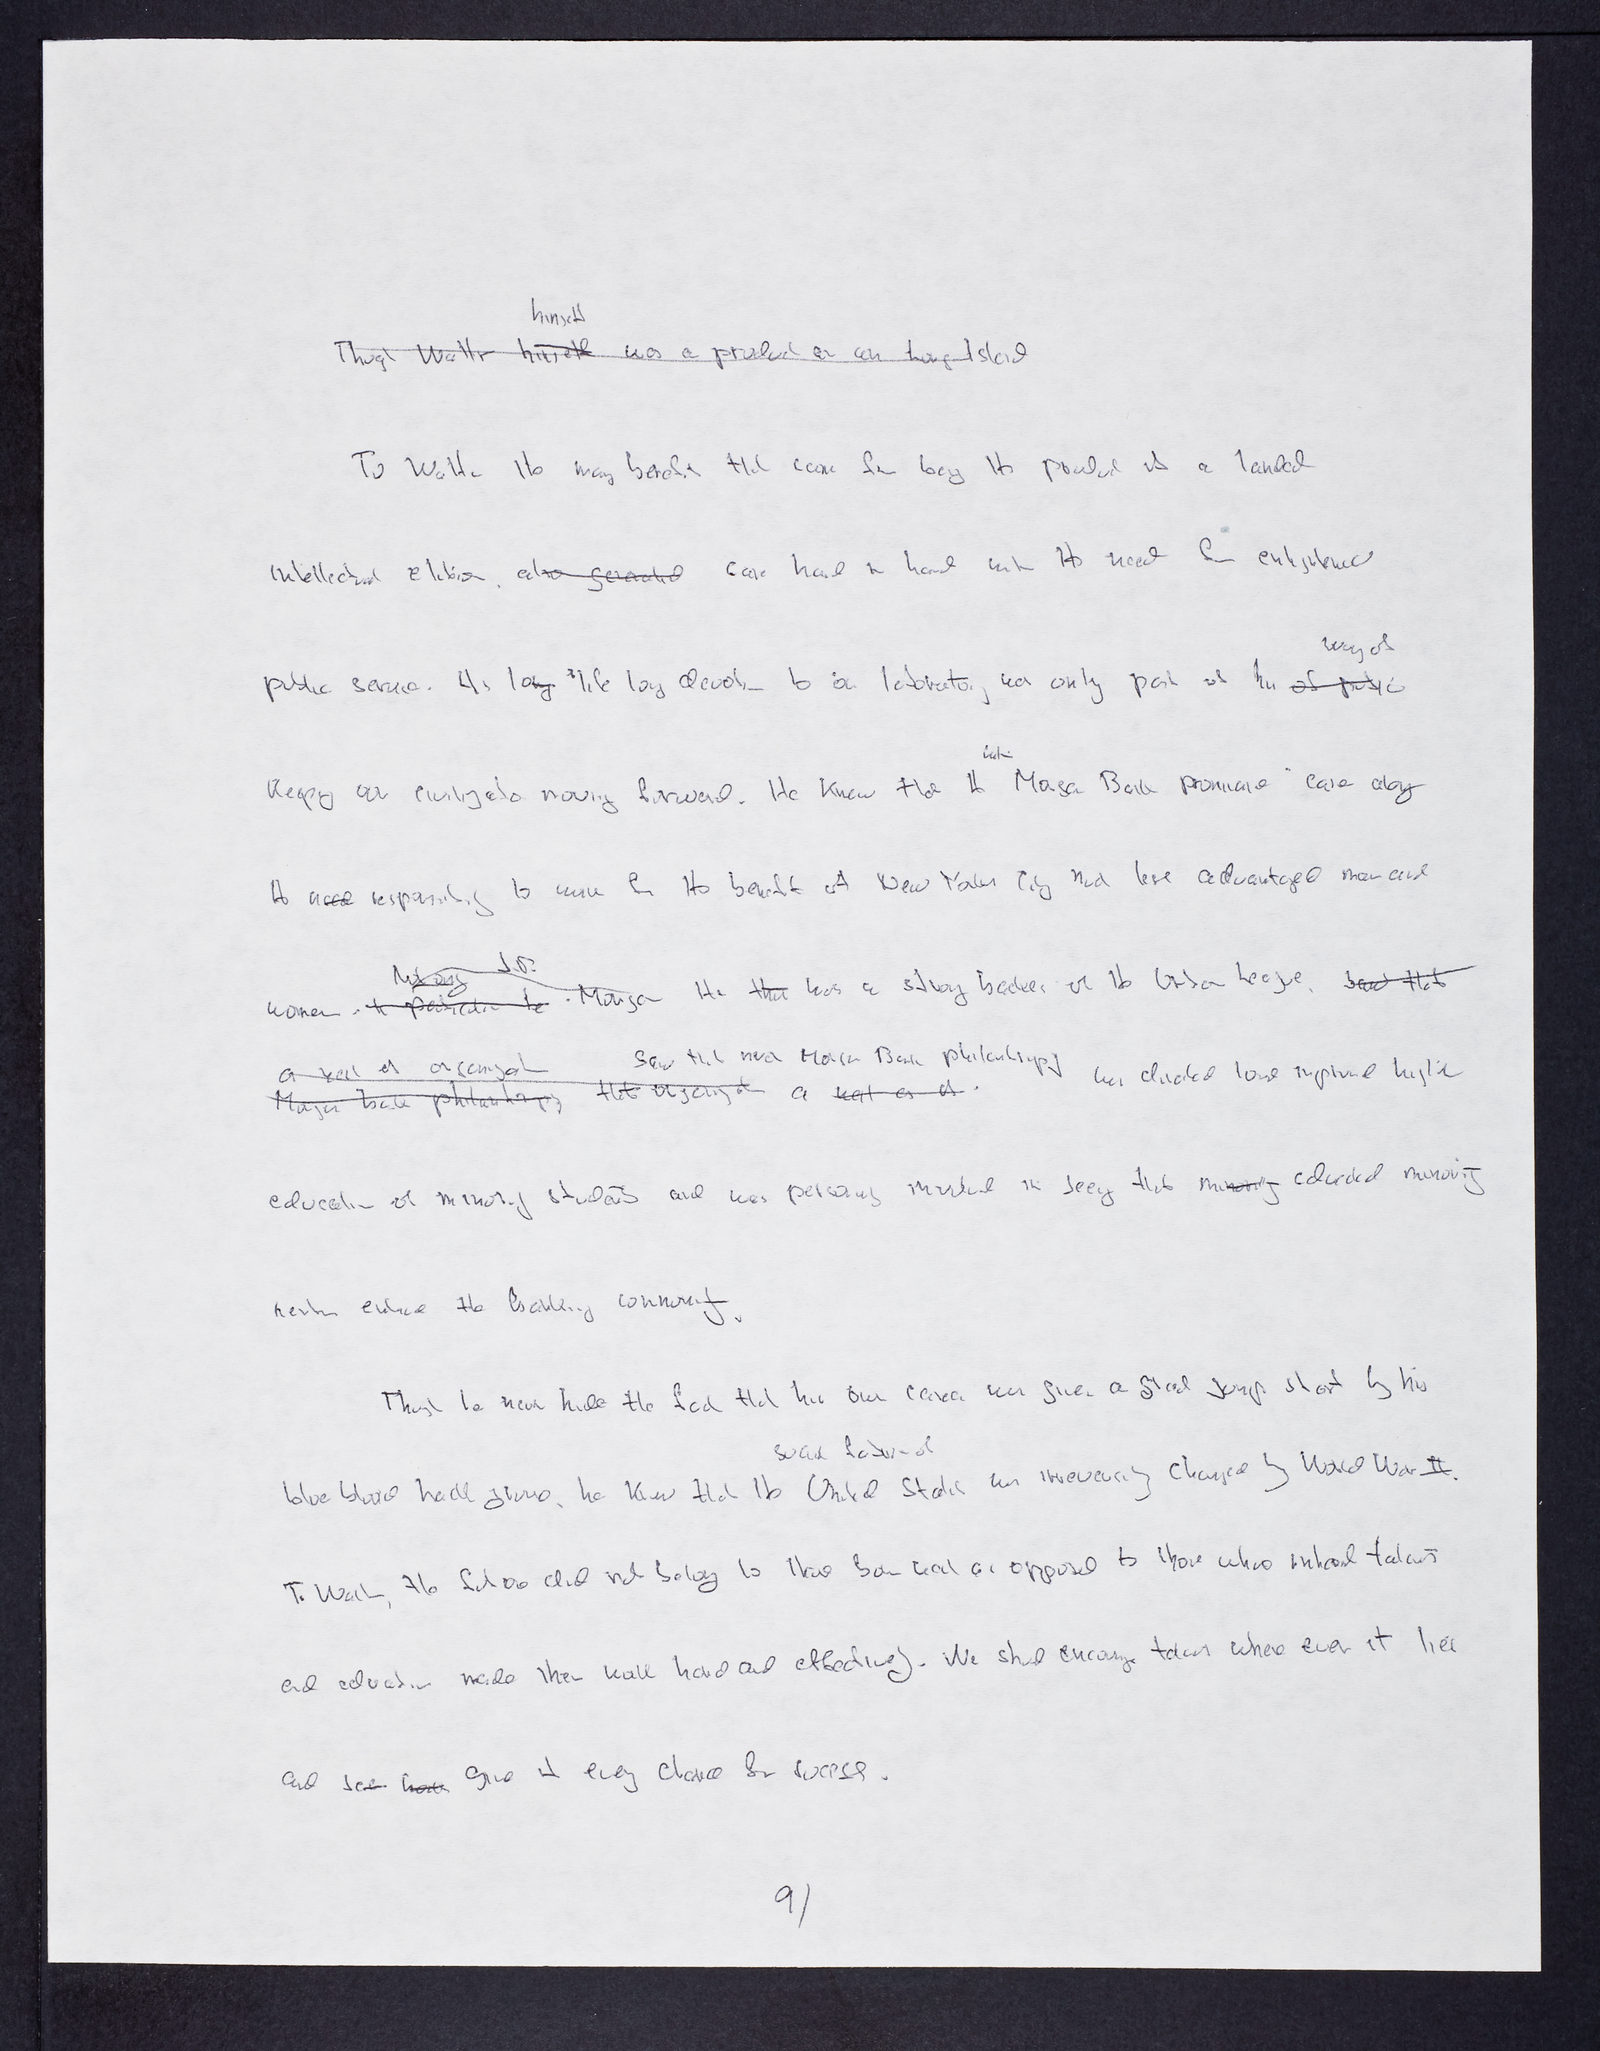 himself
Though Walter himself was a product of an Long Island
To Walter the many benefits that came from being the product of a landed
intellectual elitism, also generated came hand in hand with the need for enlightened
way of
public service. His long life long devotion to our laboratory was only part of his of public
with
Keeping our civilization moving forward. He knew that the Morgan Bank prominence came along
the need responsibility to work for the benefit of New York City and less advantaged men and
J.P.
women. In particular he Morgan He that was a strong backer of the Urban League, saw that
a well organized saw that much Morgan Bank philanthropy was directed toward improved higher
Morgan Bank philanthropy that a
education of minority students and was personally involved in seeing that minority educated minority
enter the banking community.
Though he never hid the fact that his own career was given a great jump start by his
social fabric of
blue blood background, he knew that the United States was irreversibly changed by World War II.
To Walter, the future did not belong to those born well as opposed to those whose inherent talents
and education made them work hard and effectively. We should encourage talent where ever it lies
and see give it every chance for success.
9/